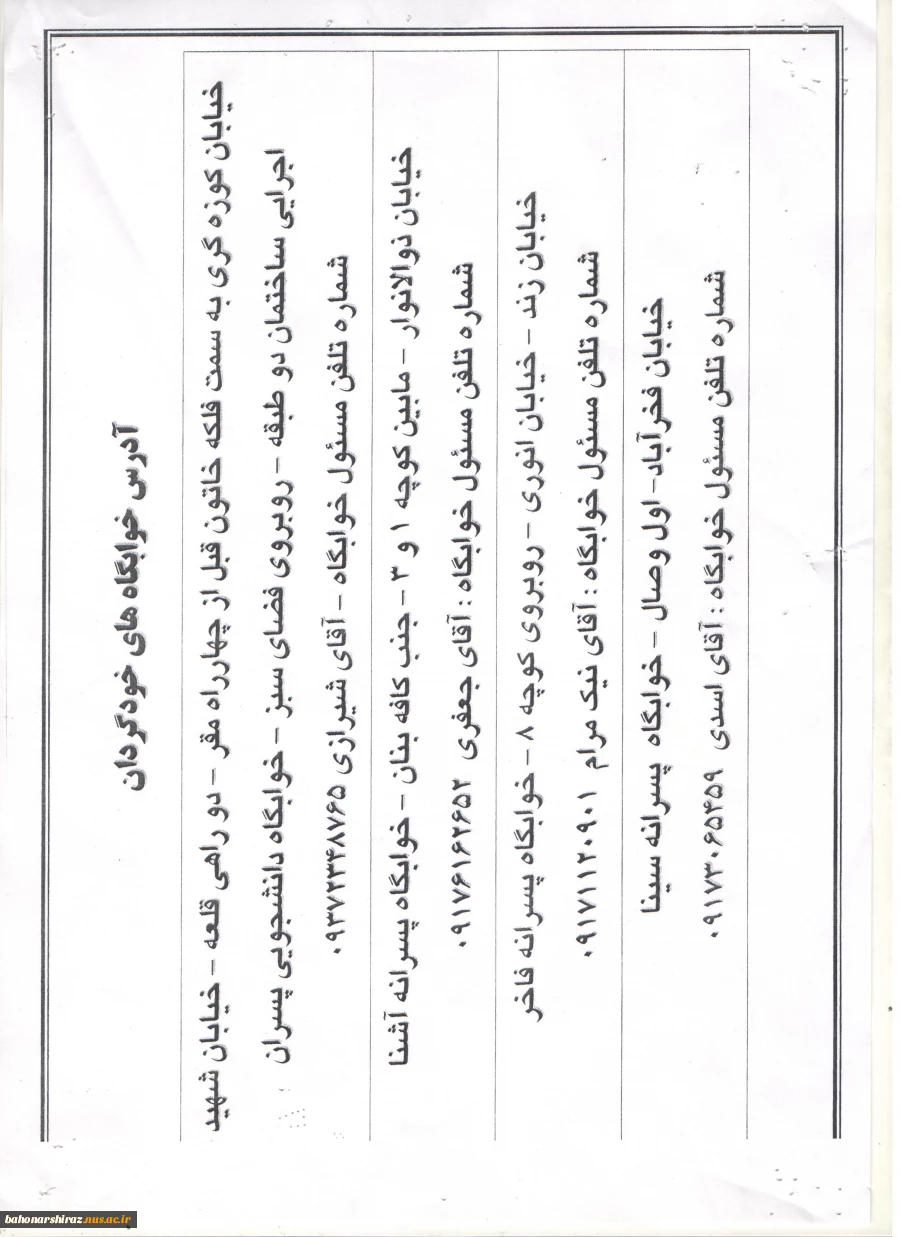 آدرس خوابگاه های خودگردان
خیابان کوزه گری به سمت فلکه خاتون قبل از چهارراه مقر – دو راهی قلعه – خیابان شهید
اجرایی ساختمان دو طبقه – روبروی فضای سبز – خوابگاه دانشجویی پسران
شماره تلفن مسئول خوابگاه – آقای شیرازی ۰۹۳۷۲۳۴۸۷۶۵
خیابان ذوالانوار – مابین کوچه ۱ و ۳ – جنب کافه بنان – خوابگاه پسرانه آشنا
شماره تلفن مسئول خوابگاه : آقای جعفری ۰۹۱۷۶۱۶۲۶۵۲
خیابان زند – خیابان انوری – روبروی کوچه ۸ – خوابگاه پسرانه فاخر
شماره تلفن مسئول خوابگاه : آقای نیک مرام ۰۹۱۷۱۱۲۰۹۰۱
خیابان فخرآباد– اول وصال – خوابگاه پسرانه سینا
شماره تلفن مسئول خوابگاه : آقای اسدی ۰۹۱۷۳۰۶۵۴۵۹
bahonarshiraz.nus.ac.ir